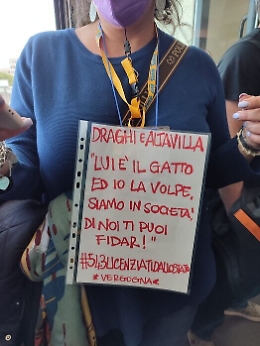 DRAGHI E ALTAVILLA
"LUI È IL GATTO
ED IO LA VOLPE,
SIAMO IN SOCIETA'
DI NOI TI PUOI
FIDAR!"
#513LICENZIATIDALLOSTATO
*VERGOGNA*